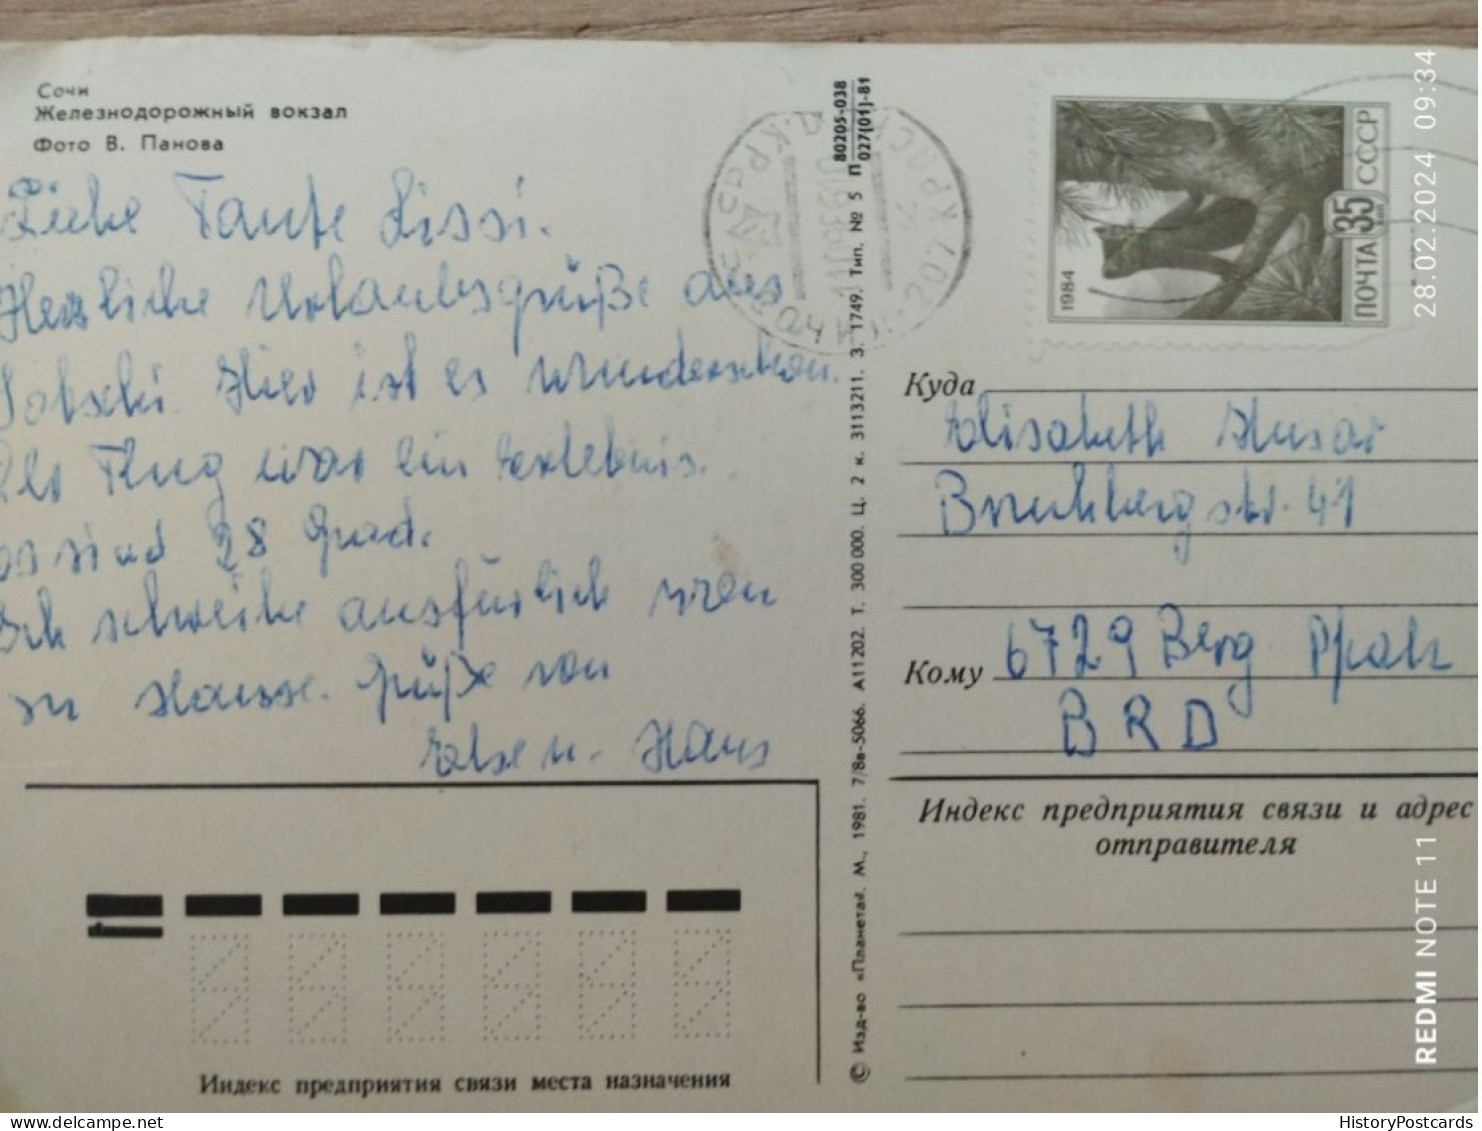 Сочи
Железнодорожный вокзал
Фото В. Панова
Liebe Tante Lissi.
Herzliche Urlaubsgrüße aus
Sotschi. Hier ist es wunderschön.
Der Flug war ein Erlebnis.
es sind 28 Grad.
Ich schreibe ausführlich wen
zu Hause. Grüße von
Else u. Hans
80205-038
027(01)-81
П
© Изд-во «Планета». М., 1981. 7/8в-5066. А11202. Т. 300 000. Ц. 2 к. 3113211. З. 1749. Тип. № 5
1984
ПОЧТА 35 СССР
Куда
Elisabeth Husar
Bruchbergstr. 41
Кому 6729 Berg Pfalz
BRD
Индекс предприятия связи и адрес
отправителя
Индекс предприятия связи места назначения
28.02.2024 09:34
REDMI NOTE 11
HistoryPostcards